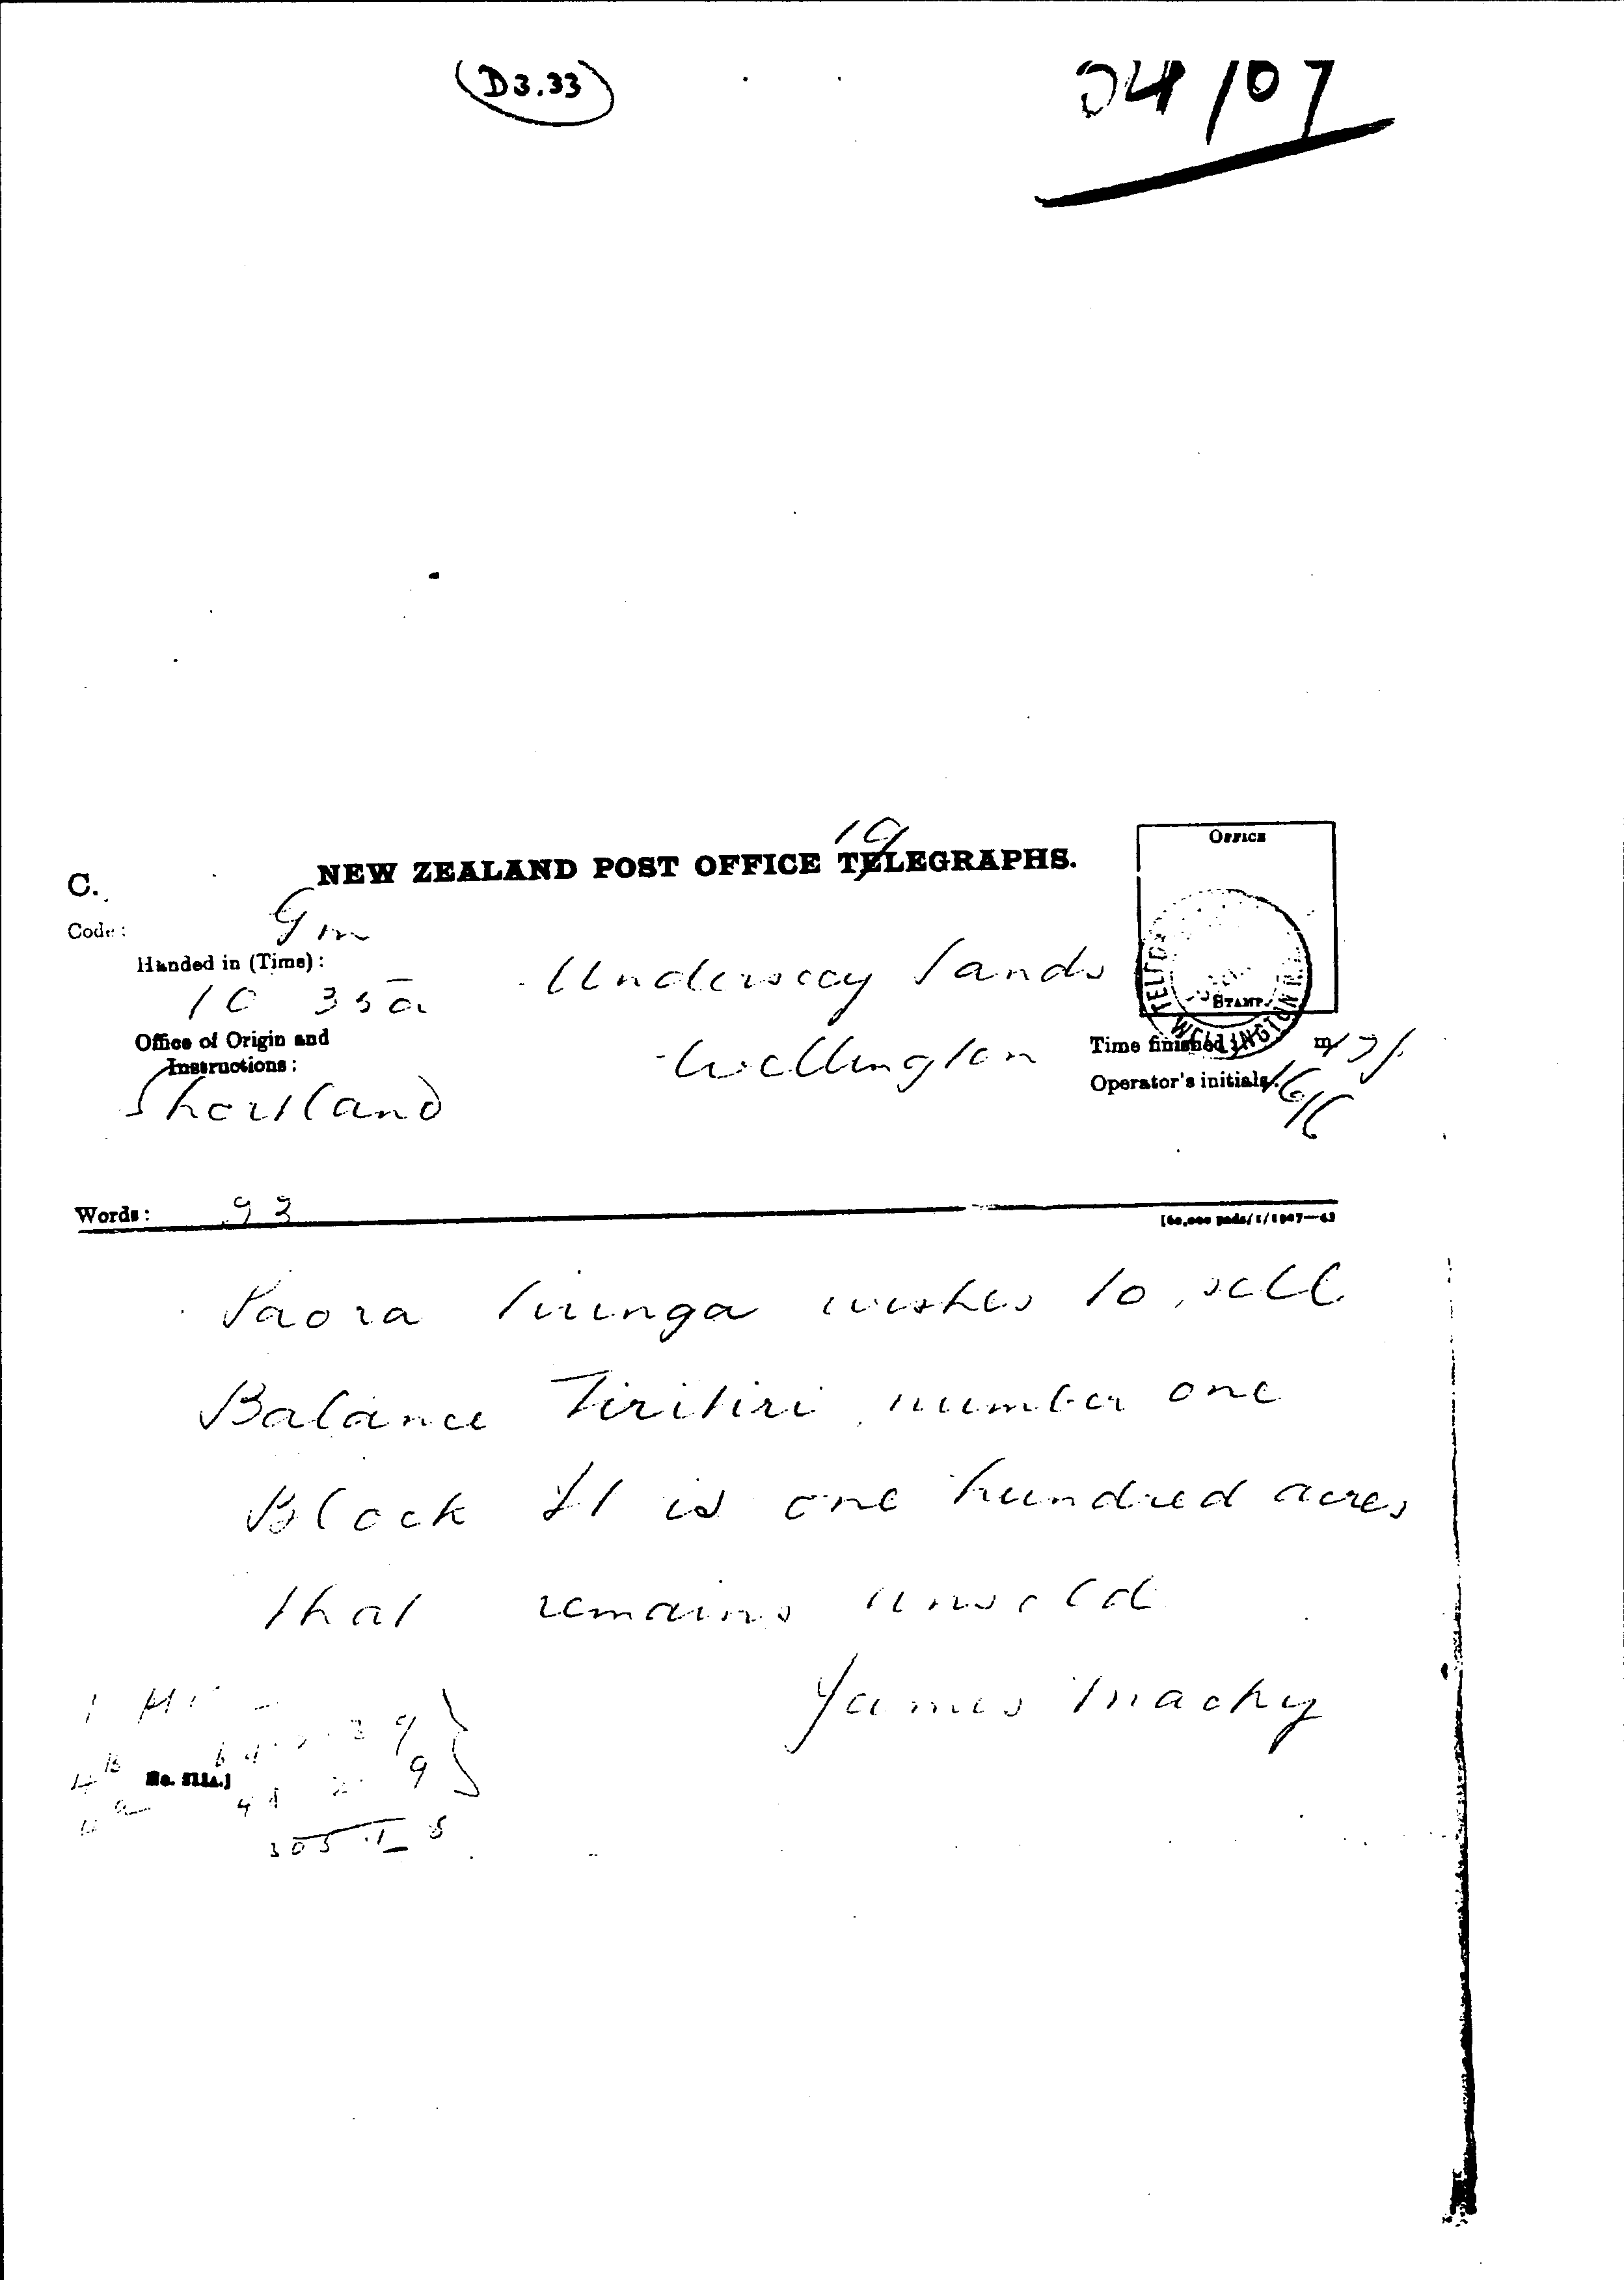 D3.33
04/07
19
NEW ZEALAND POST OFFICE TELEGRAPHS.
OFFICE
C.
Code: Gm
Handed in (Time):
10 35a
Undersecy Lands
STAMP.
WELLINGTON N.Z.
Office of Origin and
Instructions:
Wellington
Time finished m
Shortland
Operator's initials
Words: 93
Paora Tiunga wishes to sell
Balance Tiritiri number one
Block It is one hundred acres
that remains unsold
James Macky
4B 9
No. 211A.]
4a 41 2 9
305 . 1 8